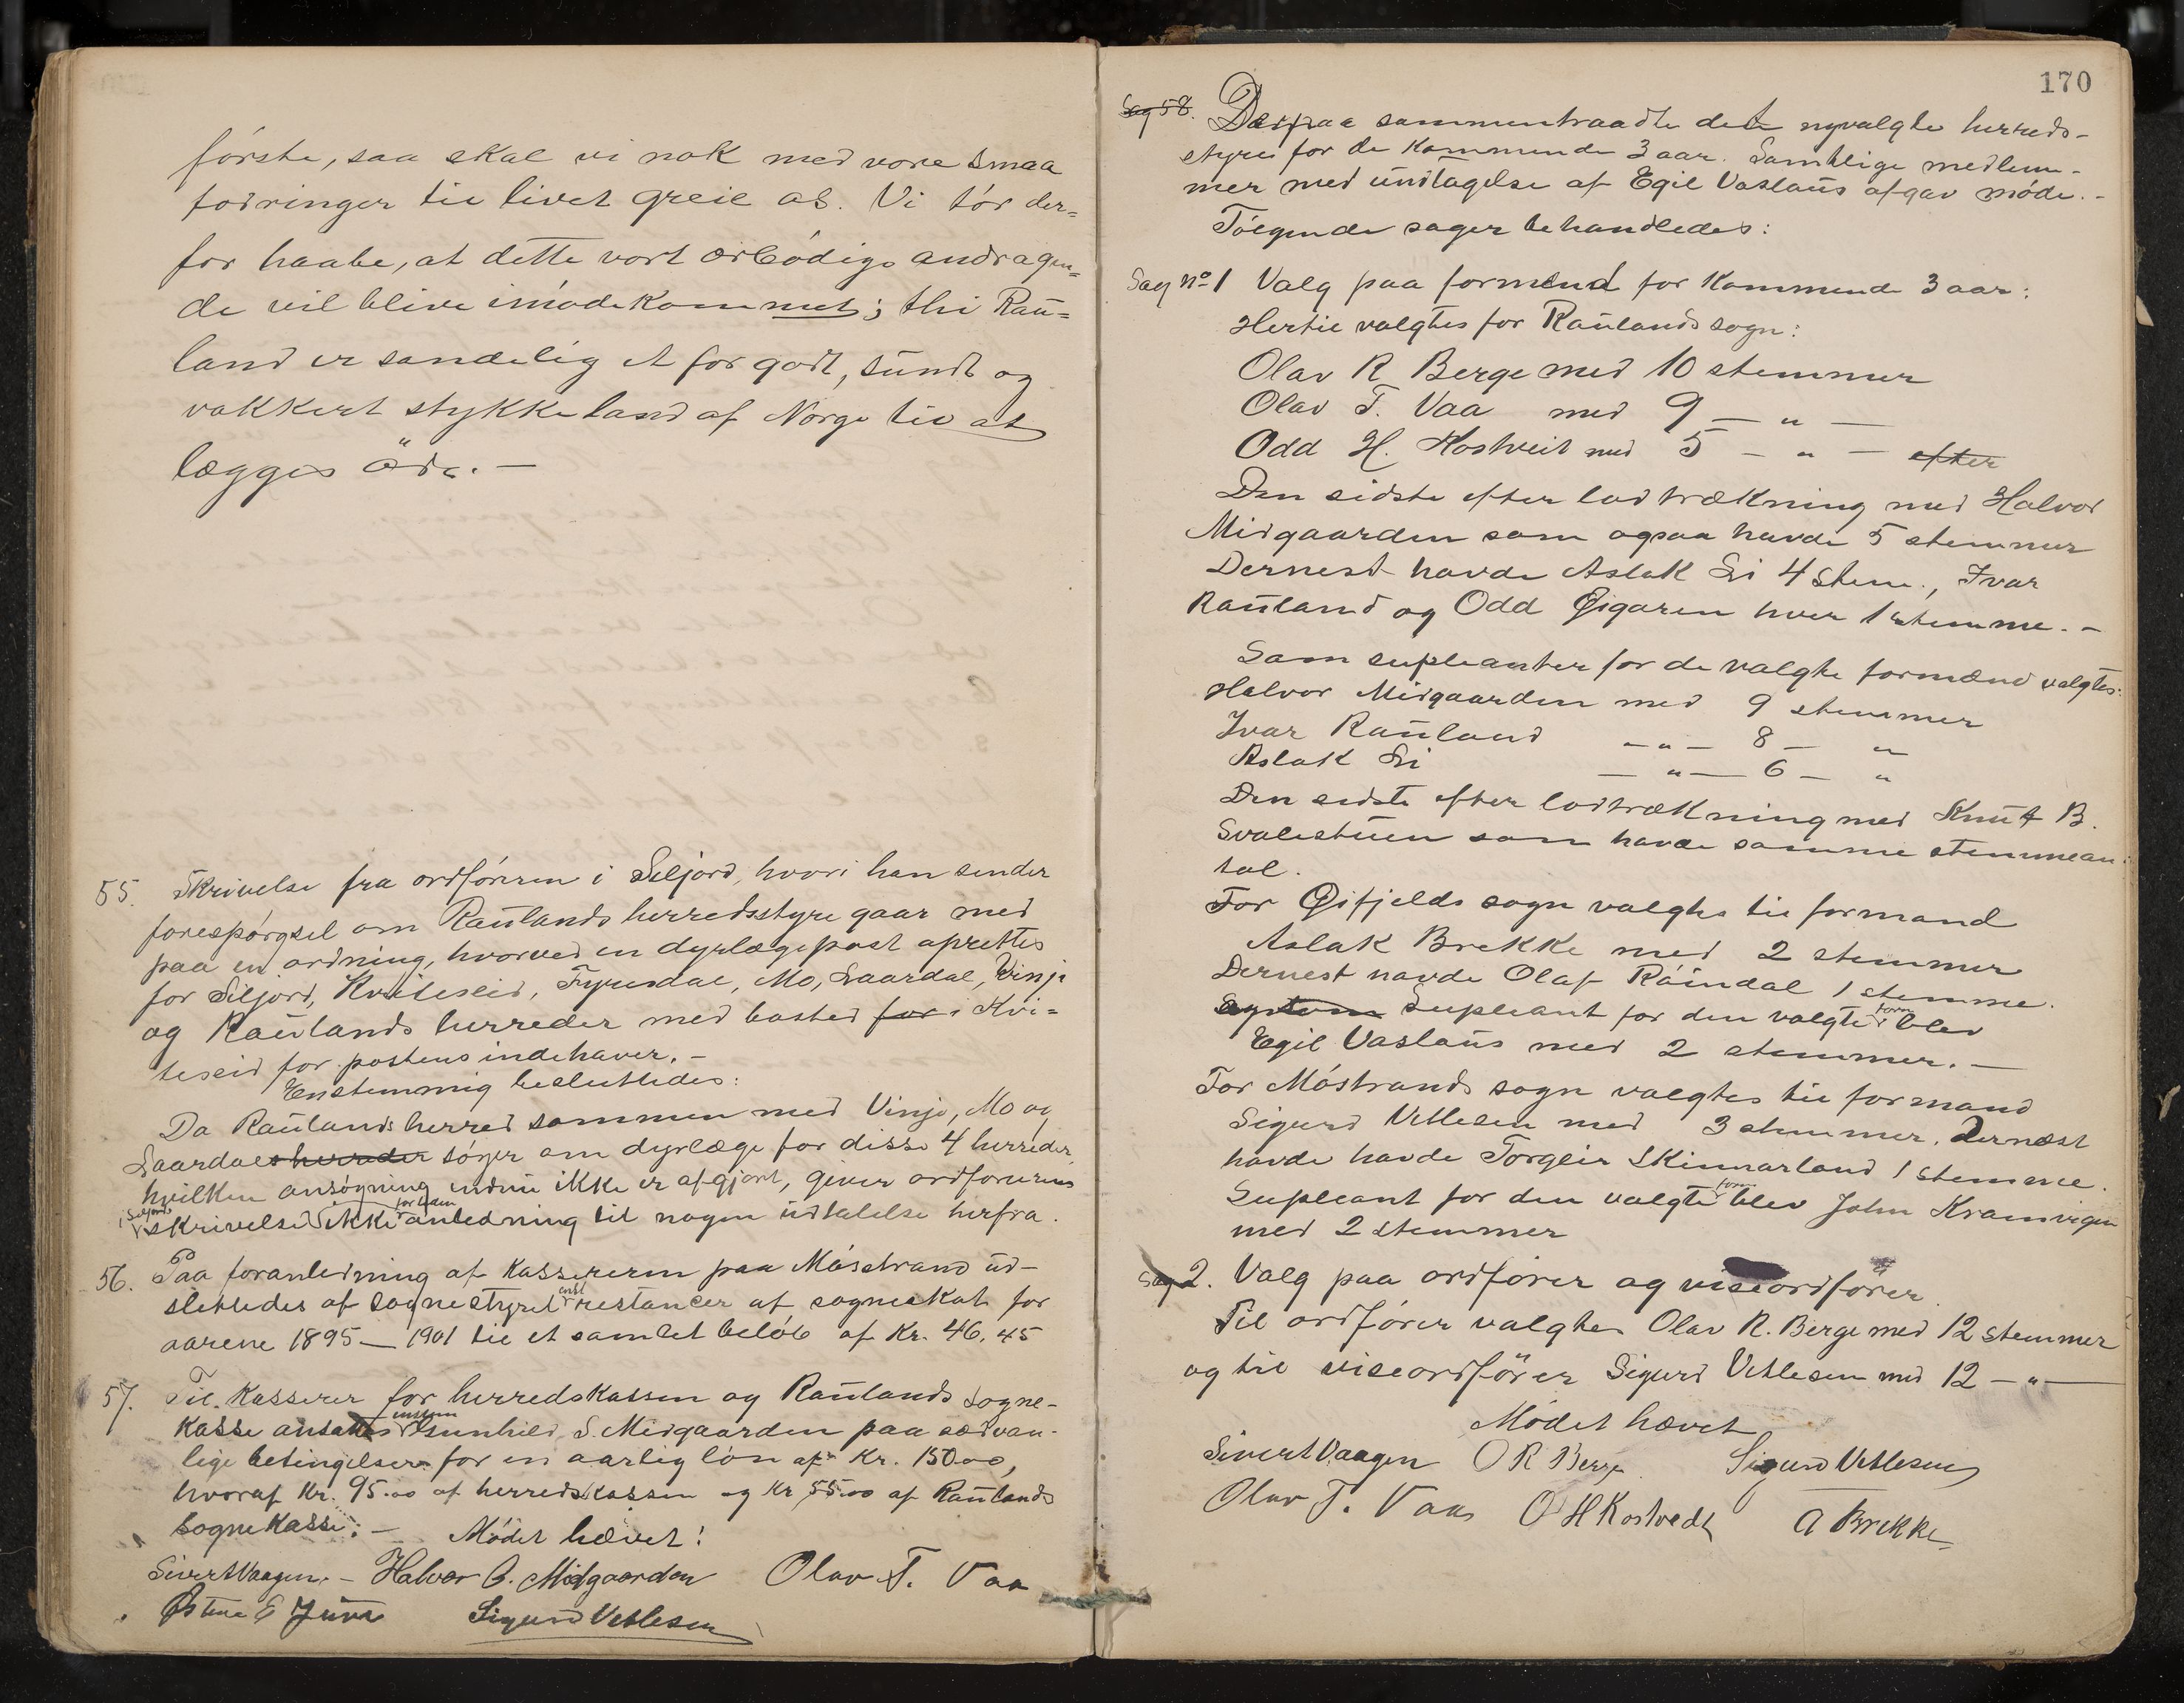 første, saa skal vi nok med vore smaa
fodringer til livet greie os. Vi tør der=
for haabe, at dette vort ærbødige andragen=
de vil blive imødekommet; thi Rau=
land er sandelig et for godt, sundt og
vakkert stykke land af Norge til at
lægges øde. —
55. Skrivelse fra ordføreren i Seljord, hvori han sender
forespørgsel om Raulands herredsstyre gaar med
paa en ordning, hvorved en dyrlægepost oprettes
for Siljord, Kviteseid, Fyresdal, Mo, Laardal, Vinje
og Raulands herreder med bosted for i Kvi=
teseid for postens indehaver. —
Enstemmig besluttedes:
Da Raulands herred sammen med Vinje, Mo og
Laardals herreder søger om dyrlæge for disse 4 herreder,
hvilken ansøgning endnu ikke er afgjort, giver ordførerens
i Seljord skrivelse ikke for tiden anledning til nogen udtalelse herfra.
56. Paa foranledning af kassereren paa Møsstrand ud-
slettedes af sognestyret restancer af sogneskat for
aarene 1895 — 1901 til et samlet beløb af Kr. 46,45
57. Til Kasserer for herredskassen og Raulands sogne-
kasse ansattes Gunhild S. Midgaarden paa sædvan-
lige betingelser for en aarlig løn af Kr. 150.00,
hvoraf Kr. 95.00 af herredskassen og Kr 55.00 af Raulands
sognekasse. — Mødet hævet!
Sivert Vaagen. — Halvor O. Midgaarden Olav T. Vaa
Østen E Juve Sigurd Vetlesen
170
Sag 58. Derpaa sammentraadte det nyvalgte herreds-
styre for de kommende 3 aar. Samtlige medlem-
mer med undtagelse af Egil Vaslaus afgav møde. -
Følgende sager behandledes:
Sag no 1 Valg paa formænd for kommende 3 aar:
Hertil valgtes for Raulands sogn:
Olav R. Berge med 10 stemmer
Olav T. Vaa med 9 — " —
Odd H. Kostveit med 5 — " — efter
Den sidste efter lodtrækning med Halvor
Midgaarden som ogsaa havde 5 stemmer
Dernest havde Aslak Li 4 stem., Ivar
Rauland og Odd Øigaren hver 1 stemme. -
Som supleanter for de valgte formænd valgtes:
Halvor Midgaarden med 9 stemmer
Ivar Rauland — " — 8 — "
Aslak Li — " — 6 — "
Den sidste efter lodtrækning med Knut B.
Svalestuen som havde samme stemmean-
tal.
For Øifjelds sogn valgtes til formand
Aslak Brekke med 2 stemmer
Dernest havde Olaf Røindal 1 stemme.
Supleant for den valgte form blev
Egil Vaslaus med 2 stemmer. —
For Møstrands sogn valgtes til formand
Sigurd Vetlesen med 3 stemmer. Dernæst
havde havde Torgeir Skinnarland 1 stemme.
Supleant for den valgte form blev John Kramvigen
med 2 stemmer
Sag 2. Valg paa ordfører og viseordfører
Til ordfører valgtes Olav R. Berge med 12 stemmer
og til viseordfører Sigurd Vetlesen med 12 — " —
Mødet hævet
Sivert Vaagen O R Berge Sigurd Vetlesen
Olav T. Vaa O H Kostvedt A Brekke